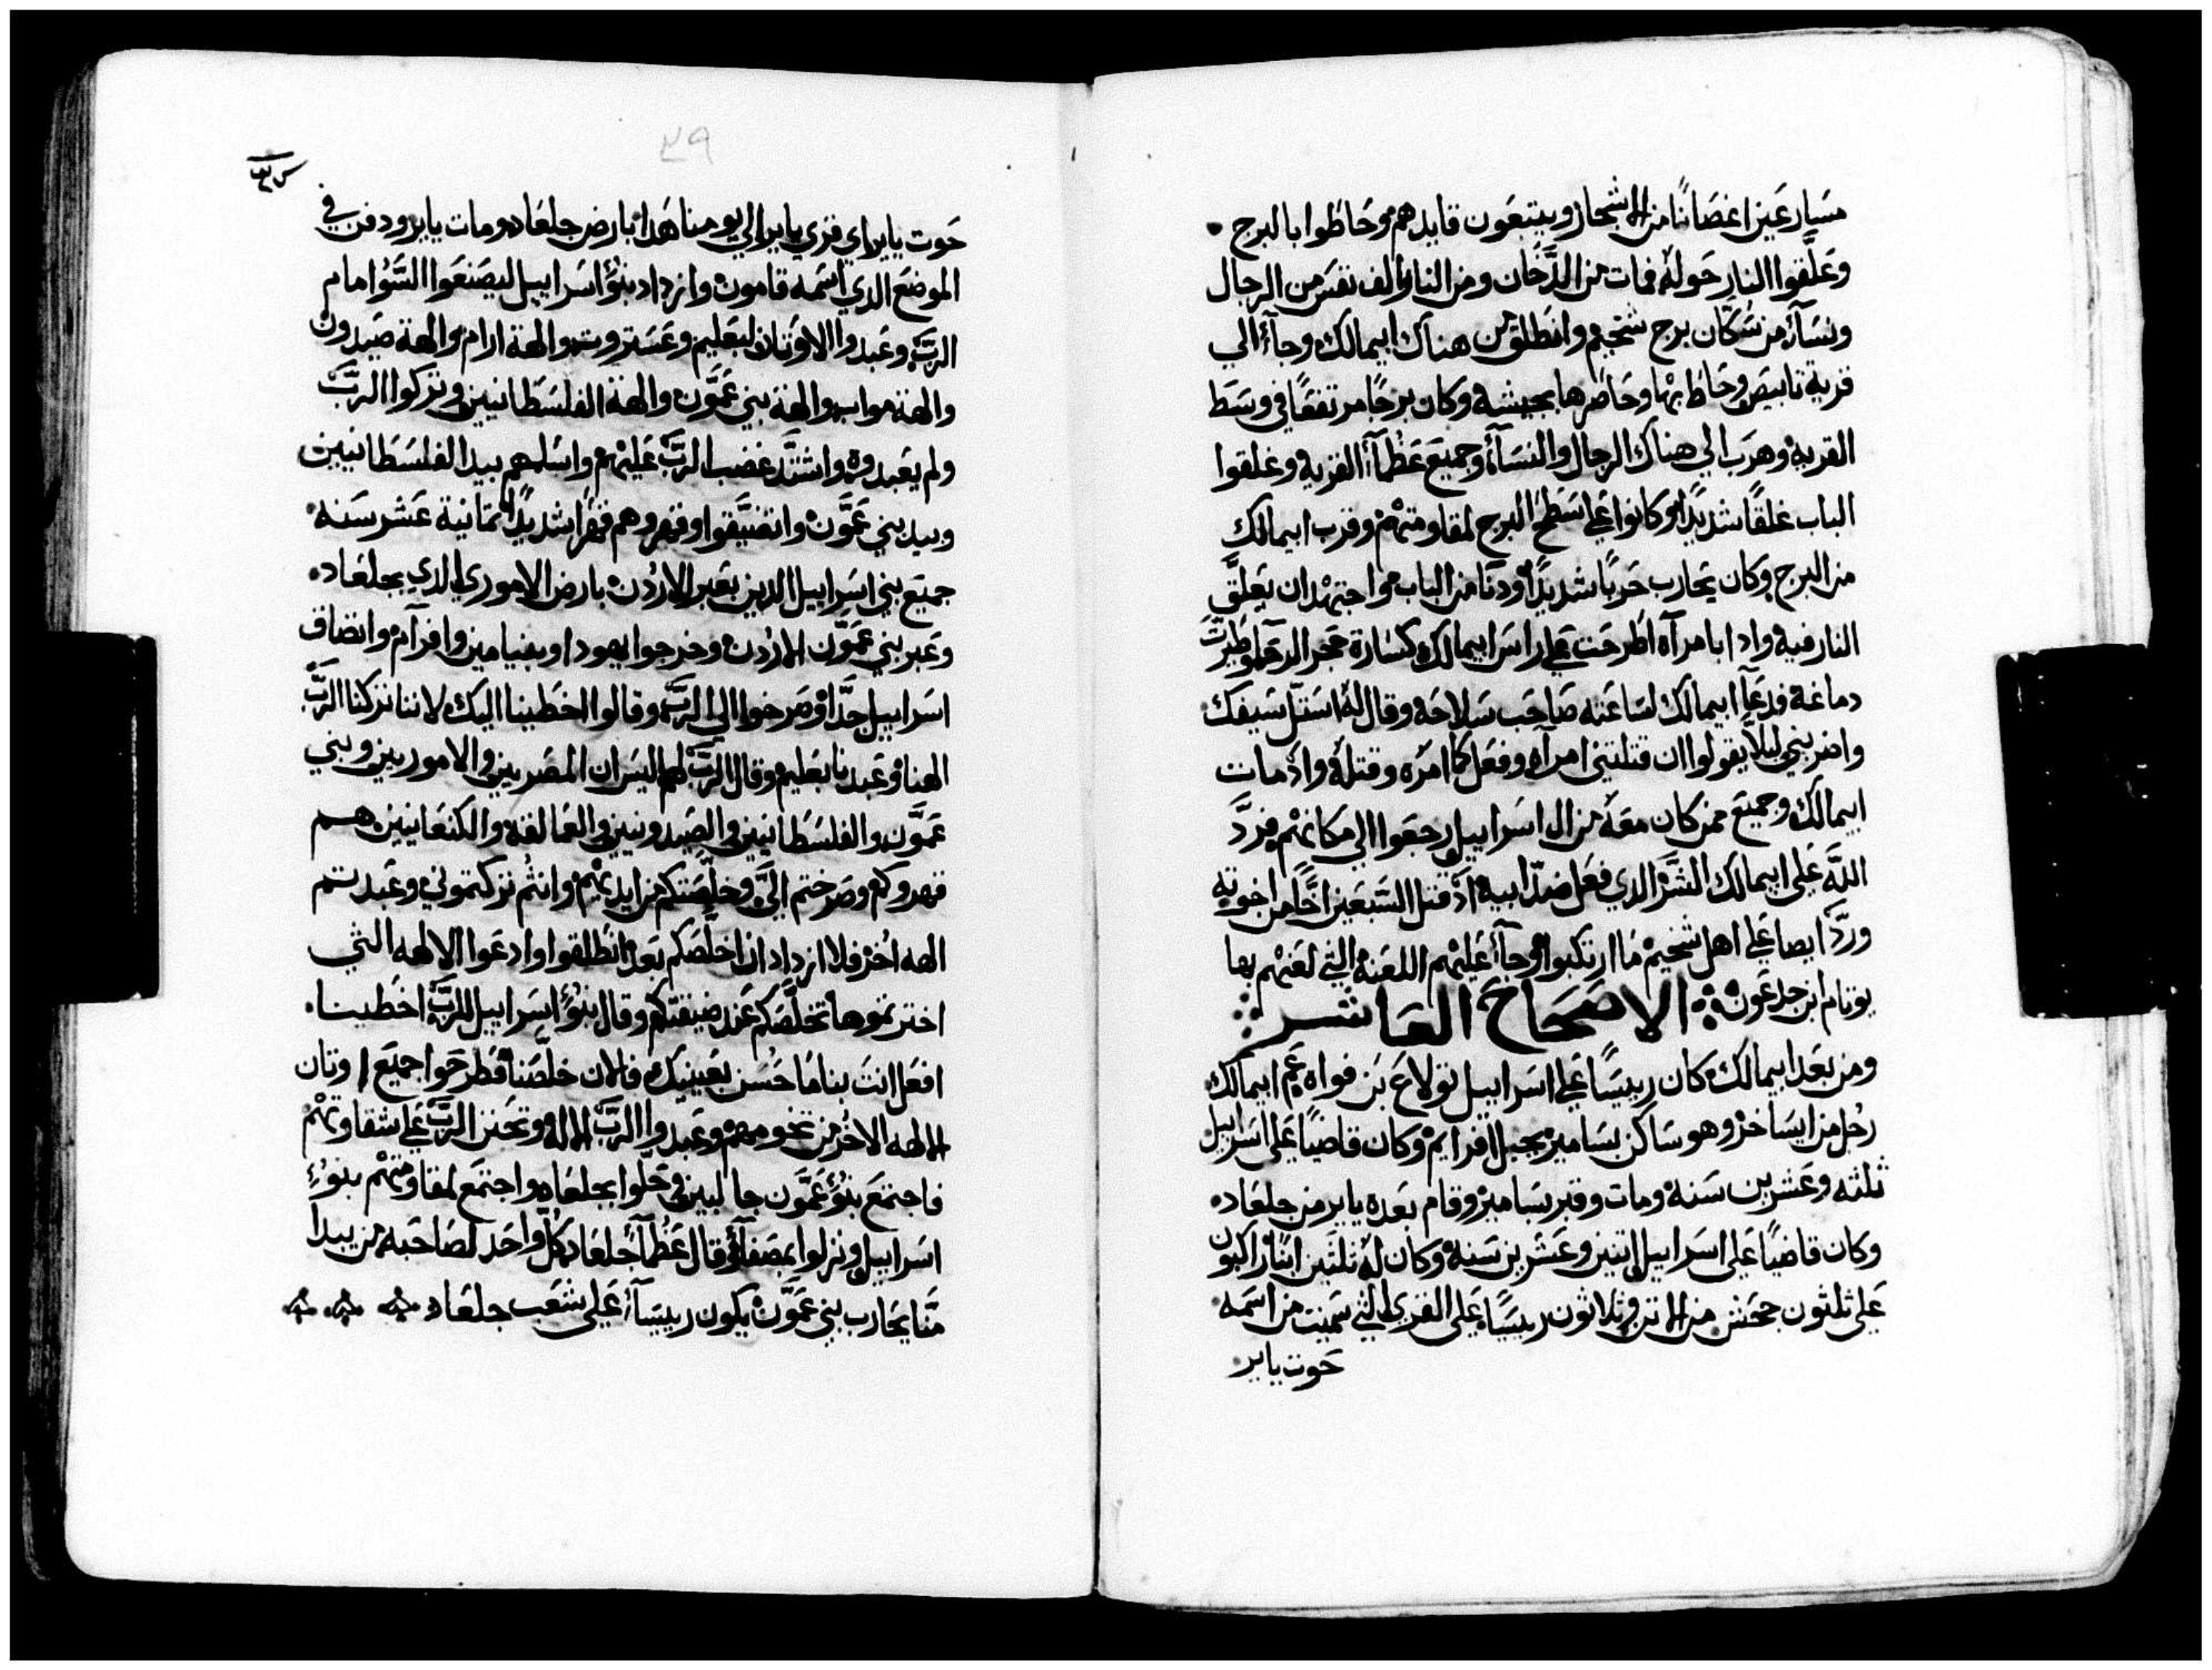 مسارعين اغصانا من الاشجار ويتبعون قايدهم وحاطوا بالبرج
وعلقوا النار حوله فمات من الدخان ومن النار الف نفس من الرجال
ونسآء من سكان برج شخيم وانطلق من هناك ابيمالك وجآء الي
قرية تابيص وحاط بها وحاصرها بجيشه وكان برجًا مرتفعًا في وسط
القريه وهرب الي هناك الرجال والنسآء وجميع عظمآء القرية وغلقوا
الباب غلقًا شديدًا وكانوا علي اسطح البرج لمقاومتهم وقرب ابيمالك
من البرج وكان يحارب حربًا شديدًا ودنا من الباب واجتهد ان يعلق
النار فيه واذا بامرآه اطرحت علي راس ابيمالك كسارة حجر الرحا وطيرت
دماغه فدعآ ابيمالك لساعته صاحب سلاحه وقال له استل سيفك
واضربني ليلا يقولوا ان قتلتني امرآه وفعل كما امره وقتله واذ مات
ابيمالك وجميع من كان معه من ال اسراييل رجعوا الي مكانهم فرد
الله علي ابيمالك الشر الدي فعل ضد ابيه اذ قتل السبعين اخًا من اخوته
ورد ايضا علي اهل شخيم ما ارتكبوا وجآء عليهم اللعنة التي لعنهم بها
يوتام ابن جدعون الاصحاح العاشر
ومن بعد ابيمالك كان رييسًا علي اسراييل تولاع بن فواه عم ابيمالك
رجل من ايساخر وهو ساكن بسامير بجبل افرايم وكان قاضيًا علي اسراييل
ثلثه وعشرين سنه ومات وقبر بسامير وقام بعده يابير من جلعاد
وكان قاضيًا علي اسراييل اتنين وعشرين سنة وكان له ثلثين ابنًا راكبون
علي ثلثون جحش من الاتن وثلاثون رييسًا علي القري التي سميت من اسمه
حوت يابير
٢٩
حوت يابير اي قري يابير الي يومنا هدا بارض جلعاد ومات يابير ودفن في
الموضع الدي اسمه قامون وازداد بنو اسراييل ليصنعوا السؤ امام
الرب وعبدوا الاوتان لبعليم وعستروت والهة ارام والهة صيدون
والهة مواب والهة بني عمون والهة الفلسطانيين وتركوا الرب
ولم يعبدوه واشتد غضب الرب عليهم واسلمهم بيد الفلسطانيين
وبيد بني عمون وانضيقوا وقهروهم قهرًا شديدًا ثمانية عشر سنه
جميع بني اسراييل الدين بعبر الاردن بارض الاموري الدي بجلعاد
وعبر بني عمون الاردن وخرجوا يهودا وبنيامين وافرآم وانضاق
اسراييل جدًا وصرخوا الي الرب وقالوا اخطينا اليك لاننا تركنا الرب
الهنا وعبدنا بعليم وقال الرب لهم اليس ان المصريين والاموريين وبني
عمون والفلسطانيين والصيدونيين والعمالقه والكنعانيين هم
قهروكم وصرختم الي وخلصتكم من ايديهم وانتم تركتموني وعبدتم
الهه اخر فلا ازداد ان اخلصكم بعد انطلقوا وادعوا الالهه التي
اخترتموها تخلصكم عند ضيقتكم وقال بنو اسراييل للرب اخطينا
افعل انت بنا ما حسن بعينيك فالان خلصنا فطرحوا جميع اوتان
الالهه الاخر من تخومهم وعبدوا الرب الاله وتحنن الرب علي شقاوتهم
فاجتمع بنو عمون جالبين وحلوا بجلعاد واجتمع لمقاومتهم بنو
اسراييل ونزلوا بمصفآ وقال عظمآ جلعاد كل واحد لصاحبه من يبدا
منا يحارب بني عمون يكون رييسآ علي شعب جلعاد